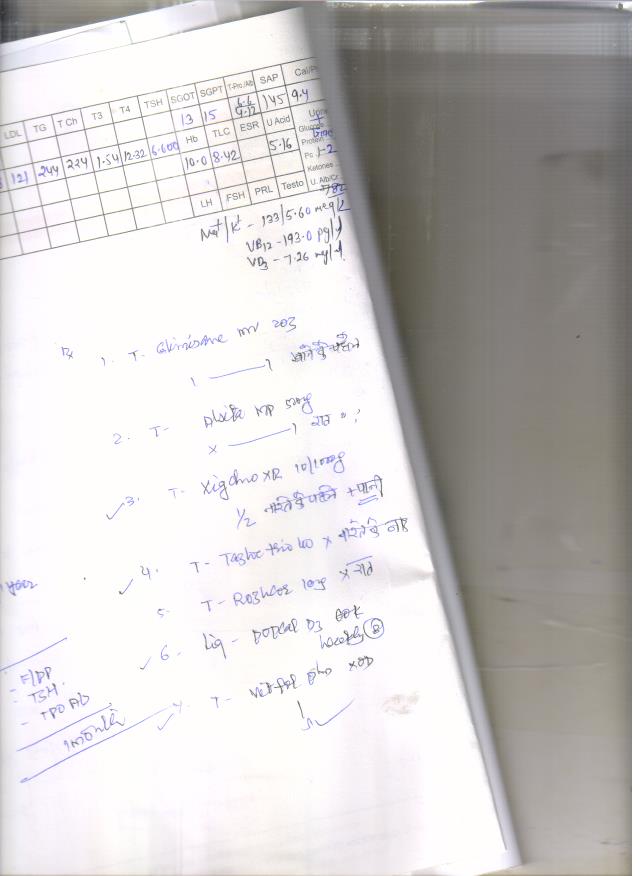 LDL TG T Ch T3 T4 TSH SGOT SGPT T-Pro./Alb SAP Cal/P
121 244 224 1.54 12.32 6.600 13 15 6.6 4.12 145 9.4
Hb TLC ESR U Acid
10.0 8.42 5.16
Glucose
Protein
Pc 1-2
Ketones
U. Alb/Cr
LH FSH PRL Testo
Na+/K+ - 133/5.60 meq/L
VB12 - 193.0 pg/ml
VD3 - 7.26 ng/ml
Rx 1. T- MV 203
1 — 1 खाने के पहले
2. T- 500mg
x — 1 रात
3. T- Xigduo XR 10/1000mg
1/2 नाश्ते के पहले + पानी
4. T- Tazloc trio 40 x नाश्ते के बाद
5. T- Rozucor 10mg x रात
6. Liq - D3 60K
weekly 8
7. T- x OD
year
- F/PP
- TSH
- TPO Ab
1 month